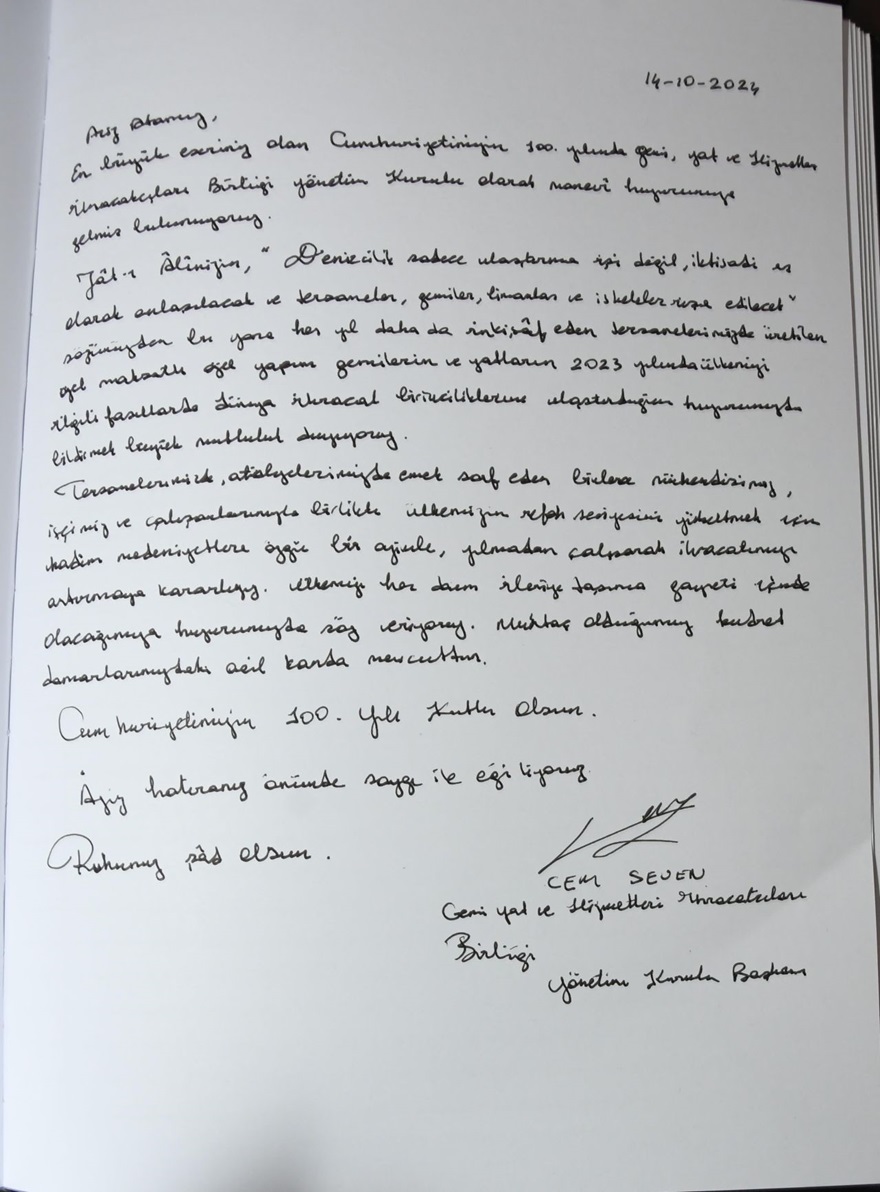 14-10-2024
Aziz Atamız,
En büyük eseriniz olan Cumhuriyetimizin 100. yılında gemi, yat ve Hizmetleri
ihracatçıları Birliği yönetim Kurulu olarak manevî huzurunuza
gelmiş bulunuyoruz.
Zât-ı Âlinizin, " Denizcilik sadece ulaştırma işi değil, iktisadi iş
olarak anlaşılacak ve tersaneler, gemiler, limanlar ve iskeleler inşa edilecek"
sözünüzden bu yana her yıl daha da inkişâf eden tersanelerimizde üretilen
özel maksatlı özel yapım gemilerin ve yatların 2023 yılında ülkemizi
ilgili fasıllarda dünya ihracat birinciliklerine ulaştırdığını huzurunuzda
bildirmek büyük mutluluk duyuyoruz.
Tersanelerimizde, atölyelerimizde emek sarf eden binlerce mühendisimiz,
işçimiz ve çalışanlarımızla birlikte ülkemizin refah seviyesini yükseltmek için
kadim medeniyetlere özgü bir azimle, yılmadan çalışarak ihracatımızı
artırmaya kararlıyız. Ülkemizi her daim ileriye taşıma gayreti içinde
olacağımıza huzurunuzda söz veriyoruz. Muhtaç olduğumuz kudret
damarlarımızdaki asil kanda mevcuttur.
Cumhuriyetimizin 100. Yılı Kutlu Olsun.
Aziz hatıranız önünde saygı ile eğiliyoruz
Ruhunuz şâd olsun.
CEM SEVEN
Gemi yat ve Hizmetleri ihracatcıları
Birliği
Yönetim Kurulu Başkanı